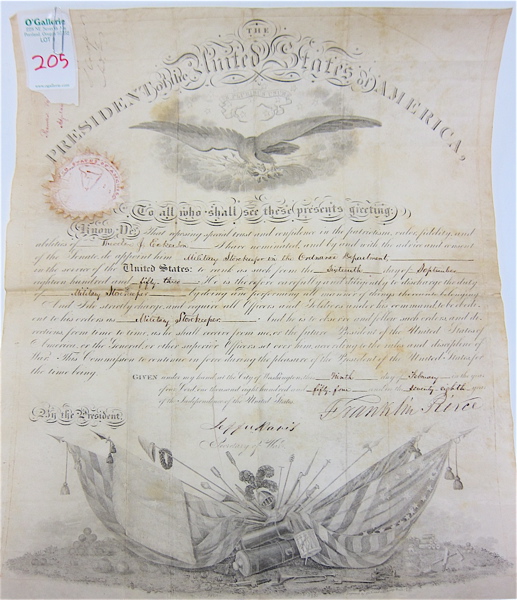 O'Gallerie
LOT #
205
THE
PRESIDENT of the United States of AMERICA,
To all who shall see these presents greeting:
Know Ye, That reposing special trust and confidence in the patriotism, valor, fidelity, and
abilities of I have nominated, and by and with the advice and consent
of the Senate do appoint him Military Storekeeper in the Ordnance Department
in the service of the United States: to rank as such from the Sixteenth day of September
eighteen hundred and fifty three. He is therefore carefully and diligently to discharge the duty
of Military Storekeeper by doing and performing all manner of things thereunto belonging.
And I do strictly charge, and require all Officers and Soldiers under his command to be obedi-
ent to his orders as Military Storekeeper. And he is to observe and follow such orders, and di-
rections, from time to time, as he shall receive from me, or the future President of the United States of
America, or the General or other superior Officers set over him, according to the rules and discipline of
War. This Commission to continue in force during the pleasure of the President of the United States, for
the time being.
GIVEN under my hand at the City of Washington this Ninth day of February in the year
of our Lord one thousand eight hundred and fifty four and in the seventy eighth year
of the Independence of the United States.
By the President,
Franklin Pierce
Jeffn Davis
Secretary of War.